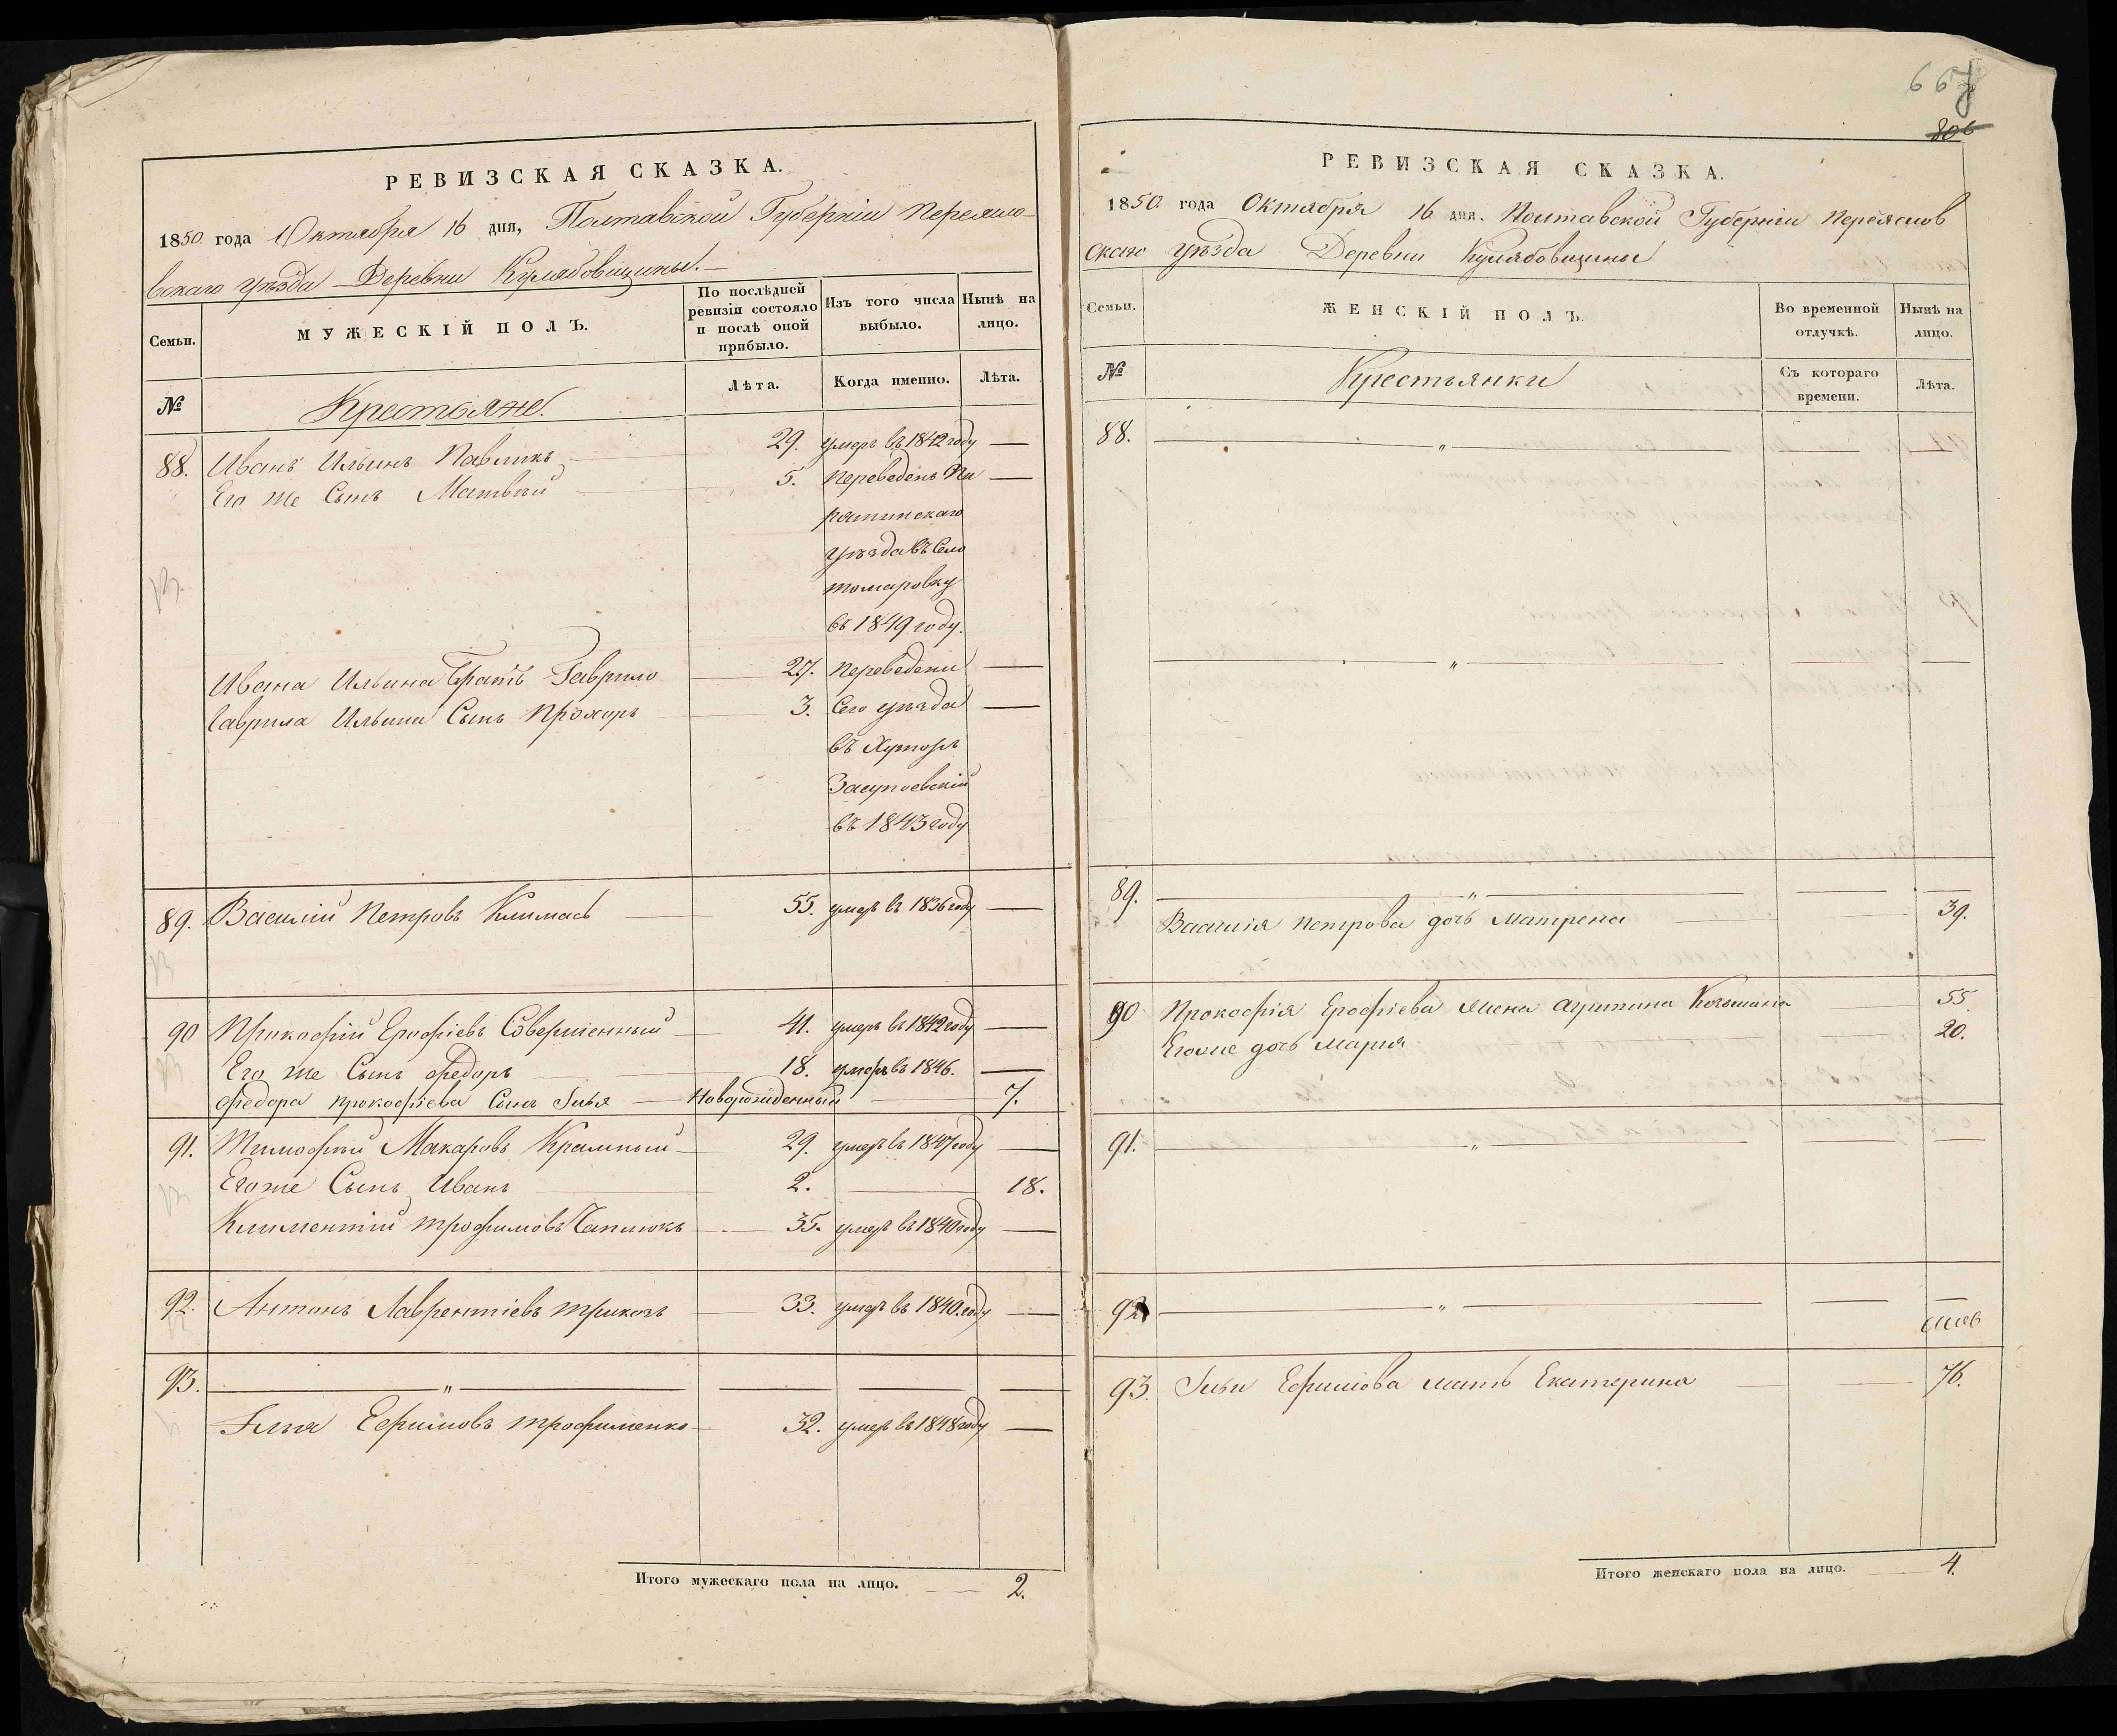 РЕВИЗСКАЯ СКАЗКА.
1850 года Октября 16 дня, Полтавской Губерніи Переясло-
вскаго уѣзда Деревни Кулябовщины.
Семьи.
МУЖЕСКІЙ ПОЛЪ.
По послѣдней ревизіи состояло и послѣ оной прибыло.
Изъ того числа выбыло.
Нынѣ на лицо.
№
Крестьяне.
Лѣта.
Когда именно.
Лѣта.
88. Иванъ Ильинъ Павликъ 29. умеръ въ 1842 году
Его же Сынъ Матвѣй 5. Переведенъ Пи
рятинскаго
уѣзда въ Село
въ 1849 году.
Ивана Ильина братъ Гаврило 27. Переведени
Гаврила Ильина Сынъ Прохоръ 3. Сего уѣзда
въ Хуторъ
Засупоевскій
въ 1843 году
89. Василій Петровъ Климась 55. умеръ въ 1836 году
90 Прокофій Ерофіевъ Совершенный 41. умеръ въ 1842 году
Его же Сынъ Федоръ 18. умеръ въ 1846.
Федора Прокофіева Сынъ Илья Новорожденный 7.
91. Тимофѣй Макаровъ 29. умеръ въ 1847 году
Егоже Сынъ Иванъ 2. 18.
Климентій Трофимовъ Чаплюкъ 35. умеръ въ 1840 году
92. Антонъ Лаврентіевъ 33. умеръ въ 1840. году
93. "
Илья Ефимовъ Трофименко 32. умеръ въ 1848 году
Итого мужескаго пола на лицо. 2.
667
806
РЕВИЗСКАЯ СКАЗКА.
1850 года Октября 16 дня. Полтавской Губерніи Переяслов
скаго уѣзда Деревни Кулябовщини
Семьи.
ЖЕНСКІЙ ПОЛЪ.
Во временной отлучкѣ.
Нынѣ на лицо.
№
Крестьянки
Съ котораго времени.
Лѣта.
88. "
"
89. "
Василія Петрова дочь Матрена 39.
90 Прокофія Ерофіева жена Агрипина Козьмина 55
Егоже дочь Марія 20.
91. "
92 "
93. Ильи Ефимова мать Екатерина 76.
Итого женскаго пола на лицо. 4.